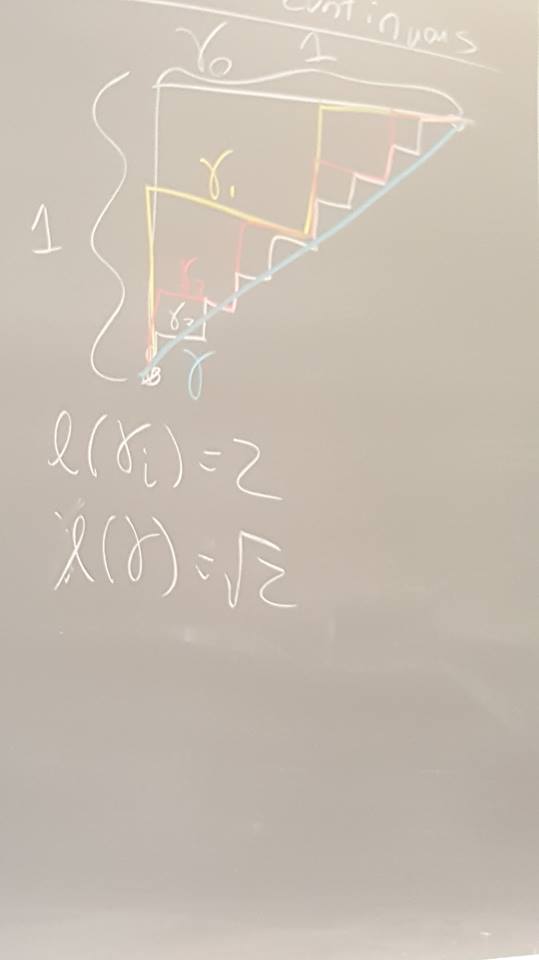 continuous
γ₀ 1
1
γ₁
γ₂
γ₃
γ
l(γᵢ) = 2
l(γ) = √2